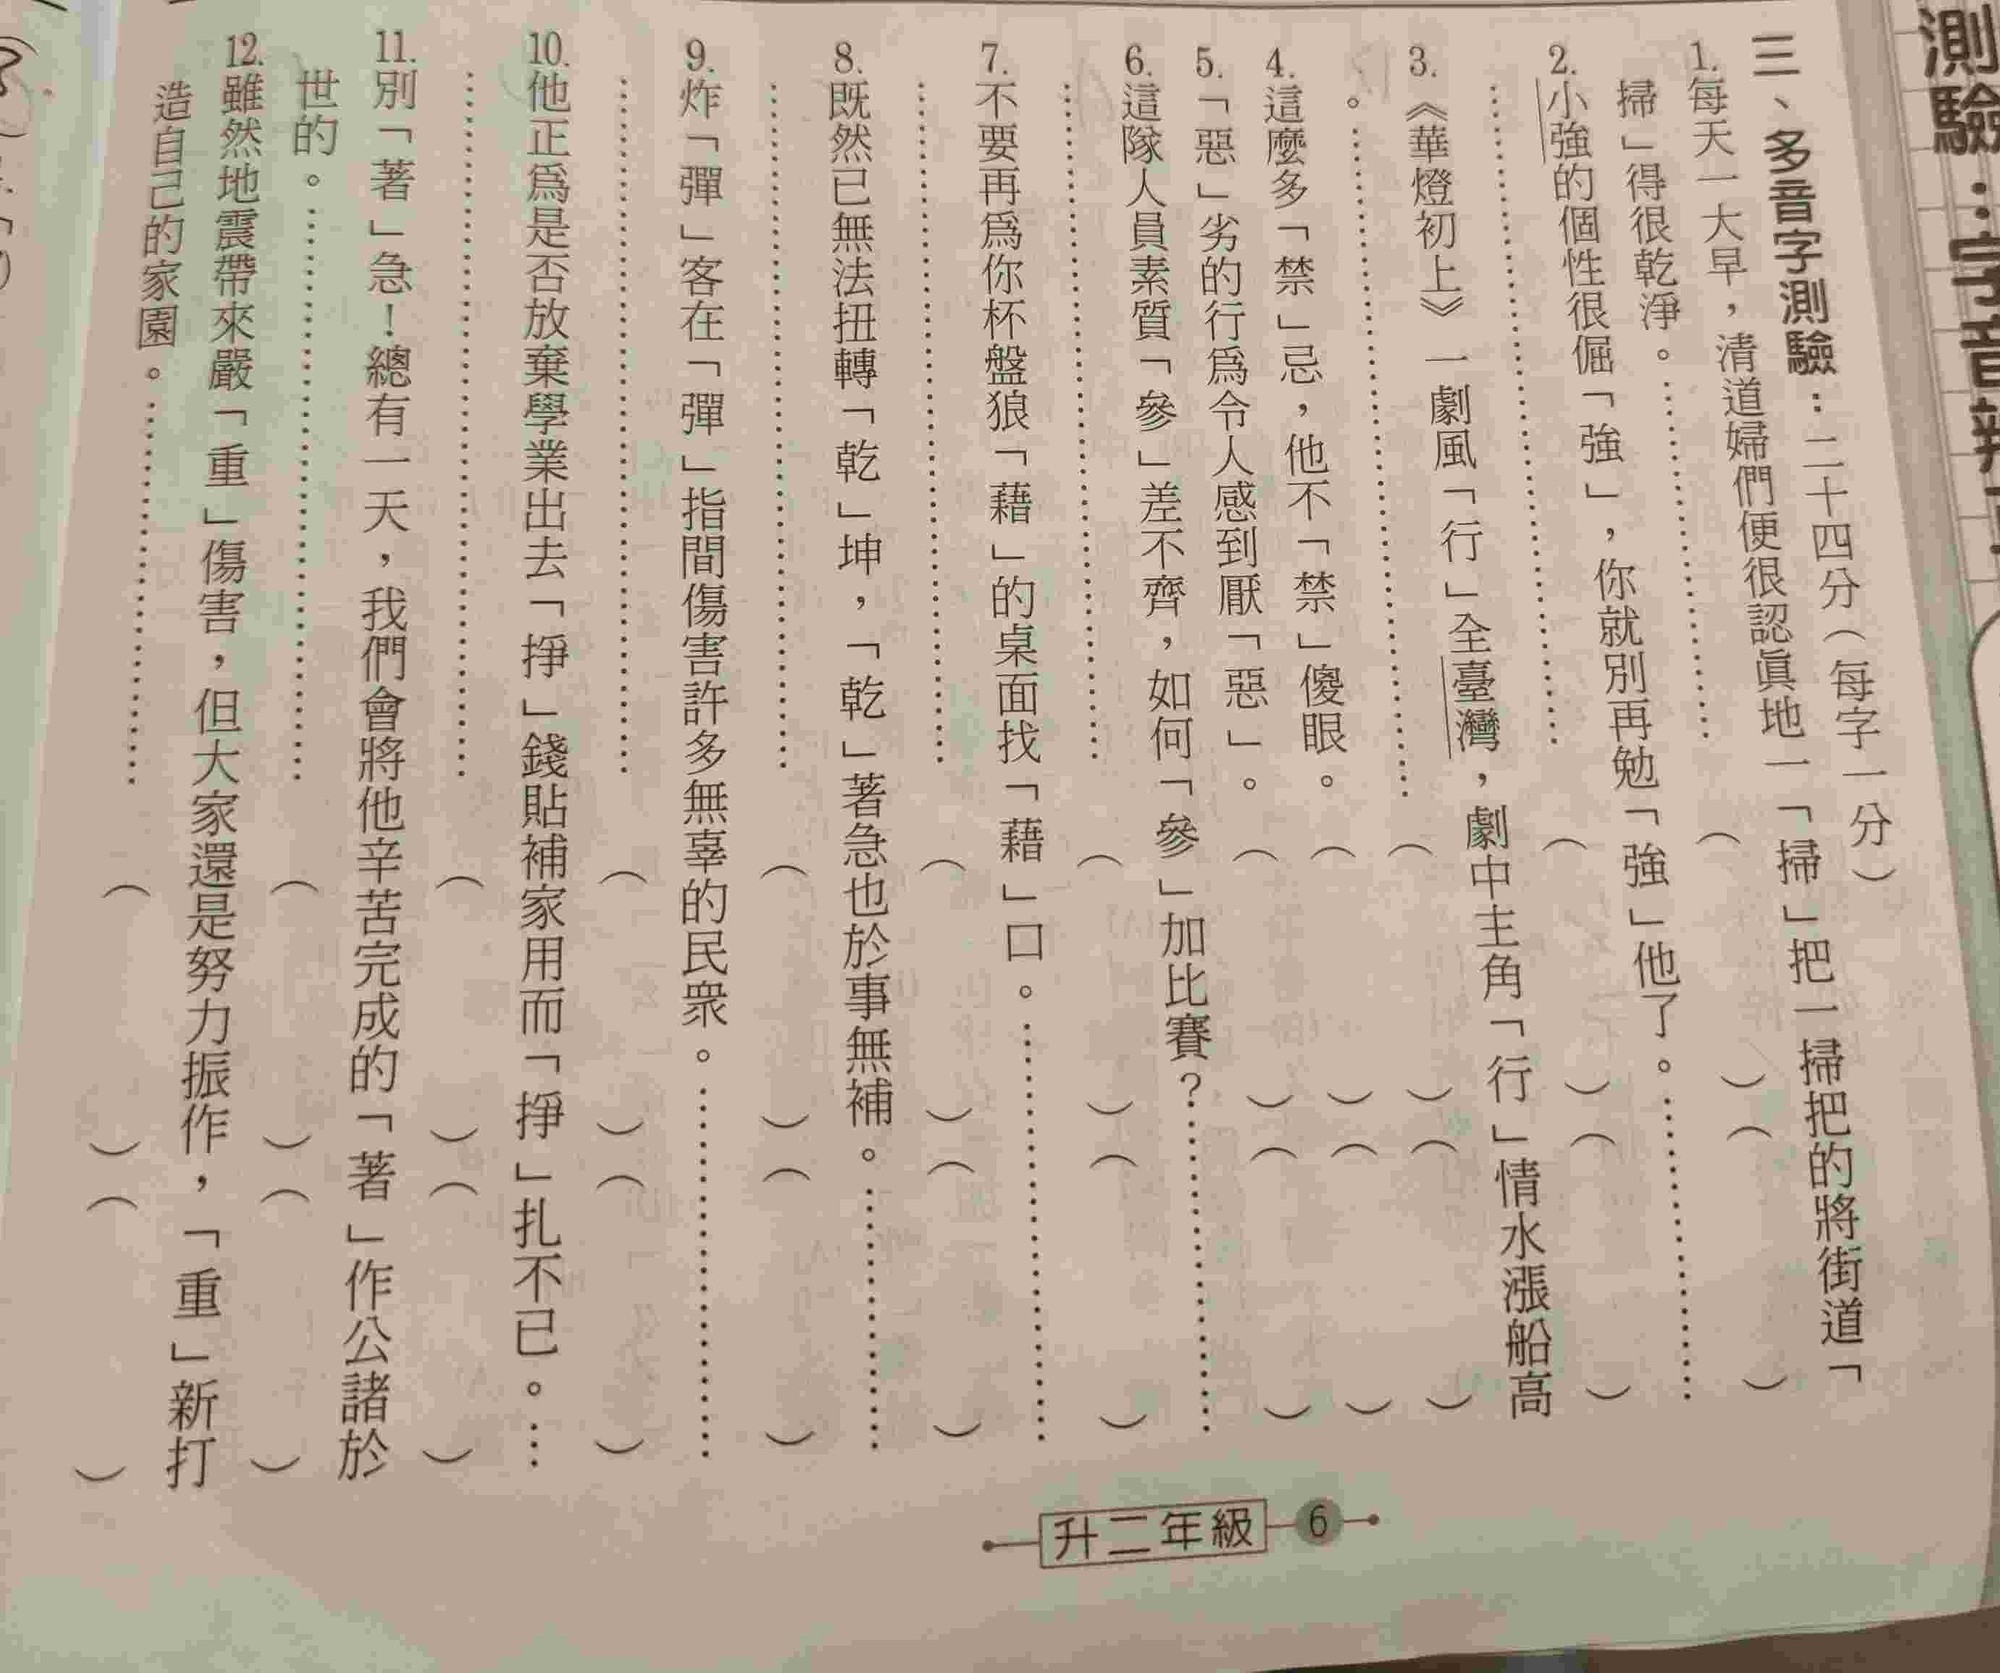 測驗：字音
三、多音字測驗：二十四分（每字一分）
1.每天一大早，清道婦們便很認真地一「掃」把一掃把的將街道「
掃」得很乾淨。……（　）（　）
2.小強的個性很倔「強」，你就別再勉「強」他了。……
……（　）（　）
3.《華燈初上》一劇風「行」全臺灣，劇中主角「行」情水漲船高
。……（　）（　）
4.這麼多「禁」忌，他不「禁」傻眼。（　）（　）
5.「惡」劣的行為令人感到厭「惡」。（　）（　）
6.這隊人員素質「參」差不齊，如何「參」加比賽？……
……（　）（　）
7.不要再為你杯盤狼「藉」的桌面找「藉」口。……
……（　）（　）
8.既然已無法扭轉「乾」坤，「乾」著急也於事無補。……
……（　）（　）
9.炸「彈」客在「彈」指間傷害許多無辜的民眾。……
……（　）（　）
10.他正為是否放棄學業出去「掙」錢貼補家用而「掙」扎不已。…
……（　）（　）
11.別「著」急！總有一天，我們會將他辛苦完成的「著」作公諸於
世的。……（　）（　）
12.雖然地震帶來嚴「重」傷害，但大家還是努力振作，「重」新打
造自己的家園。……（　）（　）
升二年級 6